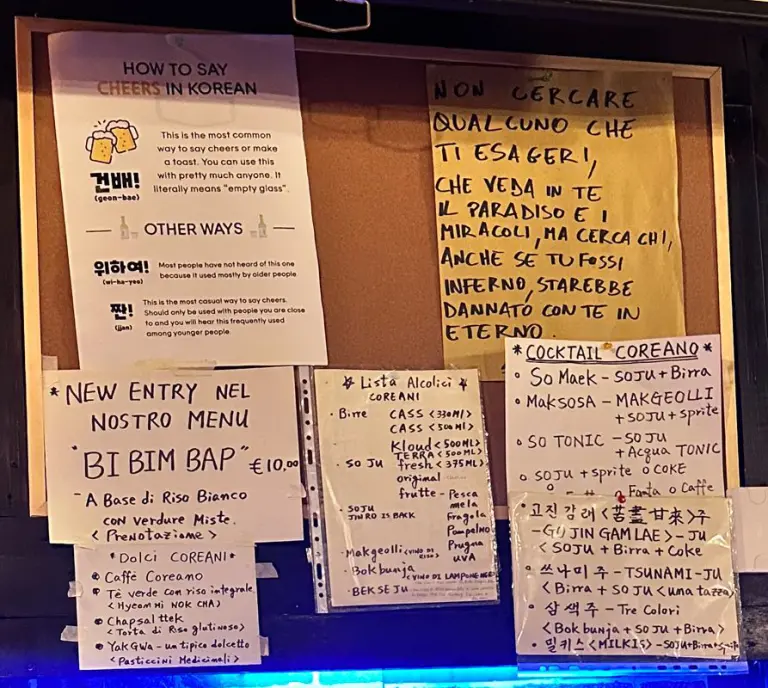 HOW TO SAY
CHEERS IN KOREAN
This is the most common
way to say cheers or make
a toast. You can use this
with pretty much anyone. It
literally means "empty glass".
건배!
(geon-bae)
OTHER WAYS
위하여!
(wi-ha-yeo)
Most people have not heard of this one
because it used mostly by older people
짠!
(jjan)
This is the most casual way to say cheers.
Should only be used with people you are close
to and you will hear this frequently used
among younger people.
NON CERCARE
QUALCUNO CHE
TI ESAGERI,
CHE VEDA IN TE
IL PARADISO E I
MIRACOLI, MA CERCA CHI,
ANCHE SE TU FOSSI
INFERNO, STAREBBE
DANNATO CON TE IN
ETERNO.
* NEW ENTRY NEL
NOSTRO MENU
"BI BIM BAP" €10,00
- A Base di Riso Bianco
CON VERDURE MISTE.
< PRENOTAZIONE >
*Dolci COREANI*
Caffè Coreano
Tè verde con riso integrale
<Hyeom Mi NOK CHA>
Chapsal ttek
<Torta di Riso glutinoso>
YAKGWA - un tipico dolcetto
<Pasticcini Medicinali>
Lista Alcolici
COREANI
· Birre CASS <330Ml>
CASS <500Ml>
Kloud <500ML>
TERRA <500ML>
· SO JU fresh <375ML>
original
frutte - Pesca
mela
Fragola
Pompelmo
Prugna
UVA
· SOJU
JINRO IS BACK
· Makgeolli <VINO DI RISO>
· Bokbunja <VINO DI LAMPONE NERO>
· BEK SE JU
*COCKTAIL COREANO*
So Maek - SOJU + Birra
MAKSOSA - MAKGEOLLI
+ SOJU + sprite
SO TONIC - SO JU
+ Acqua TONIC
SOJU + sprite o COKE
o Fanta o Caffe
고진감래 <苦盡甘來> 주
- GO JIN GAM LAE > - JU
< SOJU + Birra + Coke
쓰나미 주 - TSUNAMI - JU
< Birra + SO JU < una tazza >
삼색주 - Tre Colori
<Bokbunja + SO JU + Birra>
밀키스 <MILKIS> - SOJU + Birra + Sprite